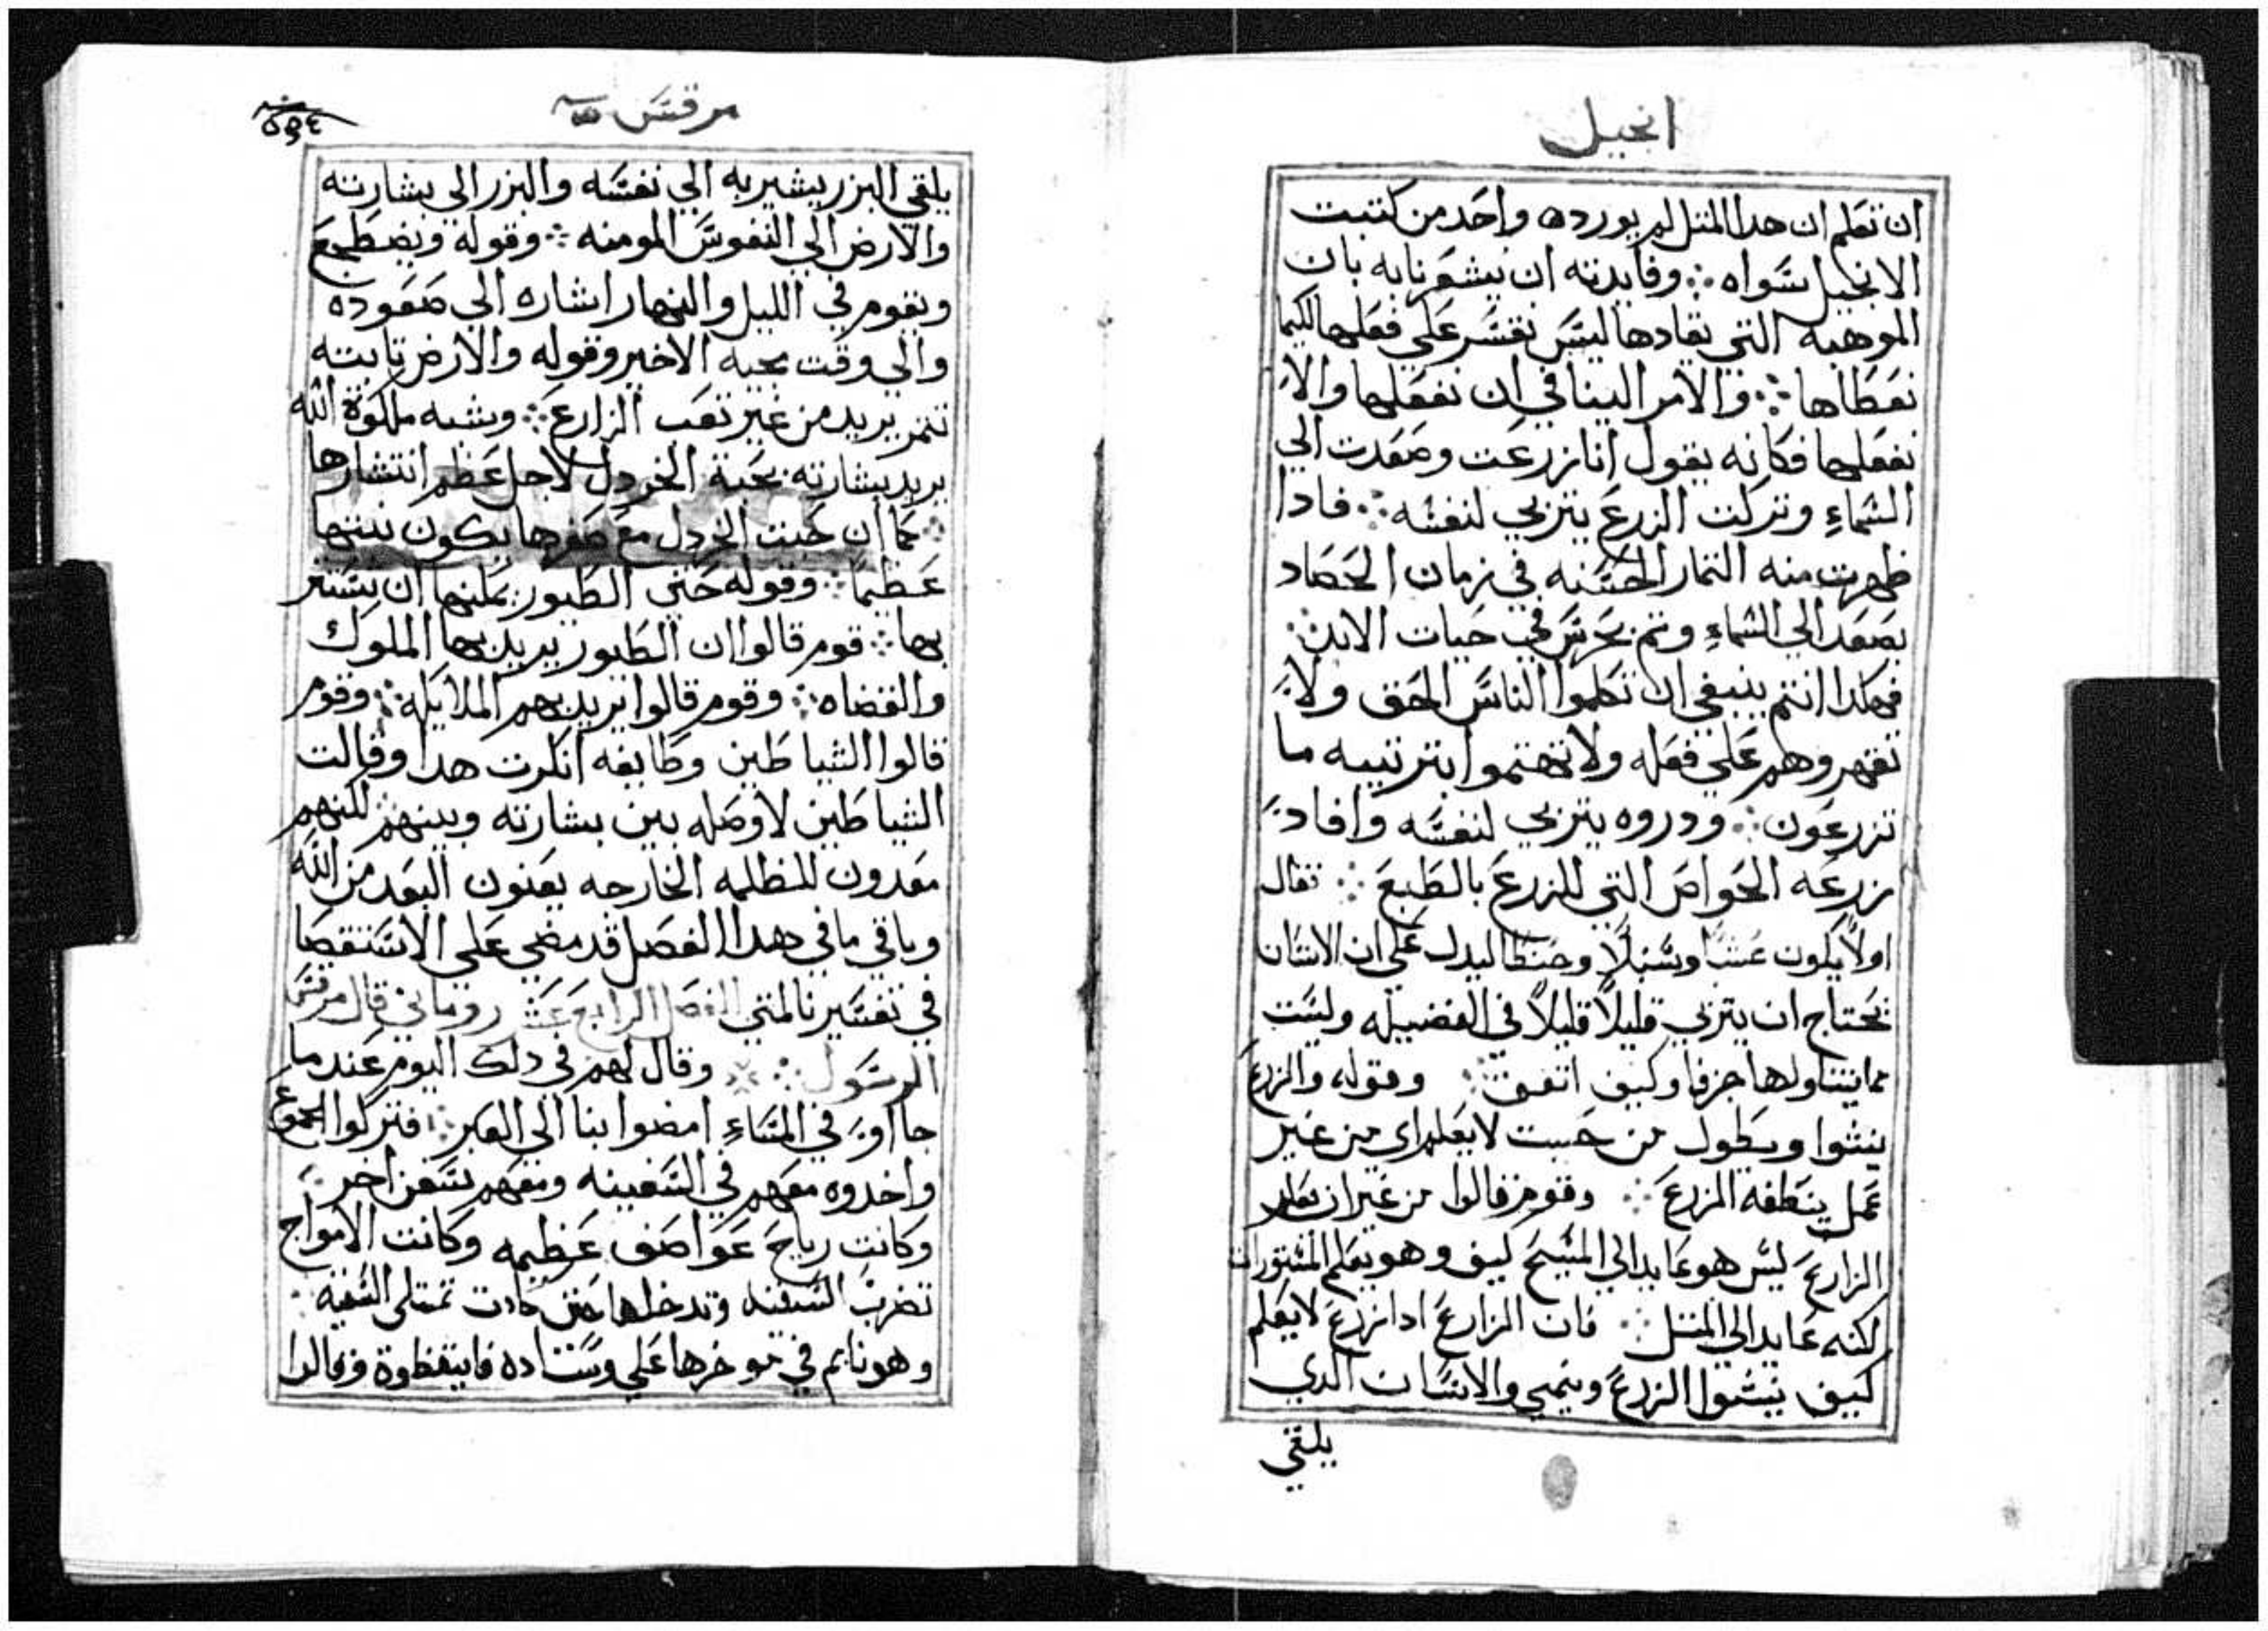 انجيل
ان تعلم ان هدا المتل لم يورده واحد من كتبت
الانجيل سواه ∴ وفايدته ان يشعرنا به بان
الموهبه التي نفادها ليس نقسر علي فعلها لكيما
نعطاها ∴ والامر الينا في ان نفعلها والا
نفعلها فكانه يقول انا زرعت وصعدت الي
السماء وتركت الزرع يتربي لنفسه ∴ فادا
ظهرت منه التمار الحسنه في زمان الحصاد
يصعد الي السماء وتم يحرس في حيات الابد ∴
فهكدا انتم ينبغي ان تعلموا الناس الحق ولا
تقهروهم علي فعله ولا تهتموا بترتيبه ما
تزرعون ∴ ودروه يتربي لنفسه وافاد
بزرعه الخواص التي للزرع بالطبع ∴ تقال
اولاً يكون عشباً وسنبلاً وحنطا ليدل علي ان الانسان
يحتاج ان يتربي قليلاً قليلاً في الفضيله وليست
مما يتناولها جزفا وكيف اتفق ∴ وقوله والزرع
ينشوا ويطول من حيت لا يعلم اي من غير
عمل ينطفه المزرع ∴ وقوم قالوا من غير ان يعلم
الزارع ليس هو عايد الي المسيح كيف وهو يعلم المستورات
لكنه عايد الي المتل ∴ فان الزارع ادا زرع لا يعلم
كيف ينشوا الزرع وينمي والانسان الدي
يلقي
مرقس
٥٣٤
يلقي البزر يشير به الي نفسه والبزر الي بشارته
والارض الي النفوس المومنه ∴ وقوله ويضطجع
ويقوم في الليل والنهار اشاره الي صعوده
والي وقت مجيه الاخير وقوله والارض تابته
تتمر يريد من غير تعب الزارع ∴ ويشبه ملكوة الله
يريد بشارته بحبة الخردل لاجل عظم انتشارها
∴ كما ان حبت الخردل مع صغرها يكون نبتها
عظيما ∴ وقوله حتي الطيور يمكنها ان تستتر
بها ∴ قوم قالوا ان الطيور يريد بها الملوك
والقضاه ∴ وقوم قالوا يريد بهم الملايكه ∴ وقوم
قالوا الشياطين وطايفه انكرت هدا وقالت
الشياطين لا وصله بين بشارته وبينهم لكنهم
معدون للظلمه الخارجه يعنون البعد من الله
وباقي ما في هدا الفصل قد مضي علي الاستقصا
في تفسيرنا لمتي الفصل الرابع عشر روماني قال مرقس
الرسول ∴ وقال لهم في دلك اليوم عند ما
جا اوئ في المساء امضوا بنا الي العبر ∴ فتركوا الجموع
واخدوه معهم في السفينه ومعهم سفن اخر ∴
وكانت رياح عواصف عظيمه وكانت الامواج
تضرب السفينه وتدخلها حتى كادت تمتلى السفينه ∴
وهو نايم في موخرها علي وسادة فايقظوة وقالوا